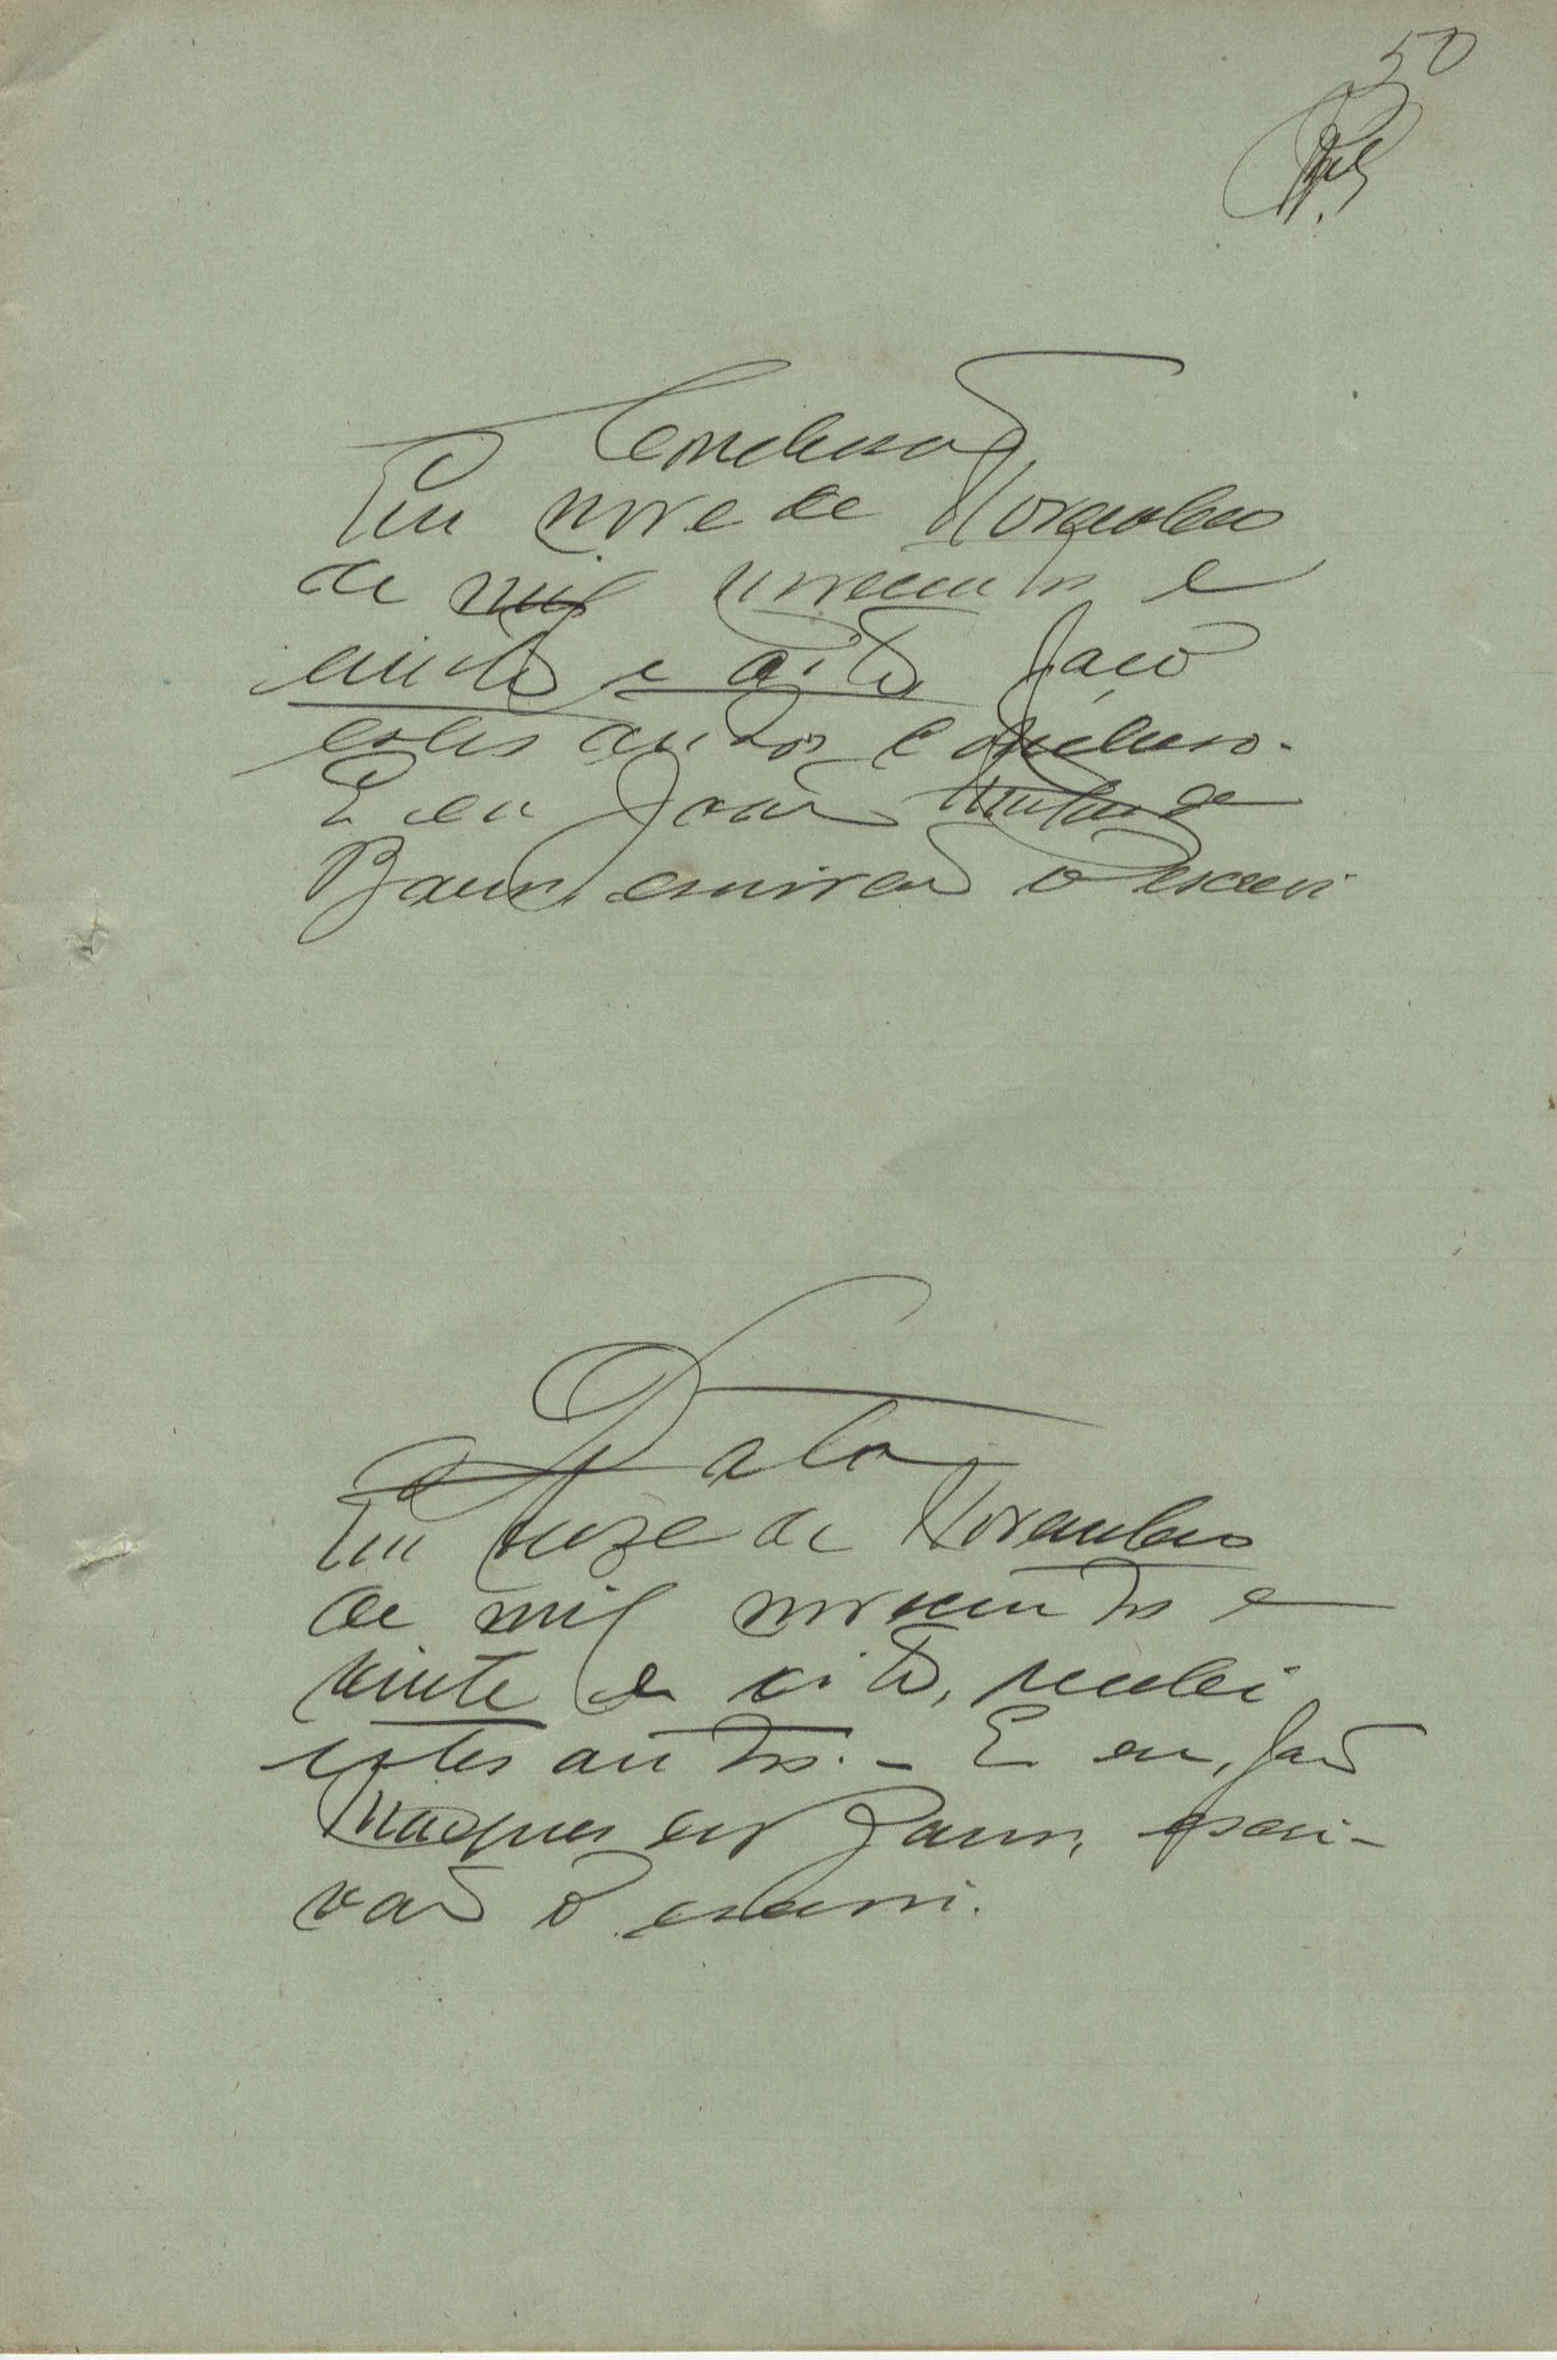 50
Conclusão
Em nove de Novembro
de mil novecentos e
vinte e oito, faço
estes autos conclusos.
E eu João
Barros, escrivão o escrevi
Data
Em doze de Novembro
de mil novecentos e
vinte e oito, recebi
estes autos. - E eu, João
Marques de Barros, escri-
vão o escrevi.